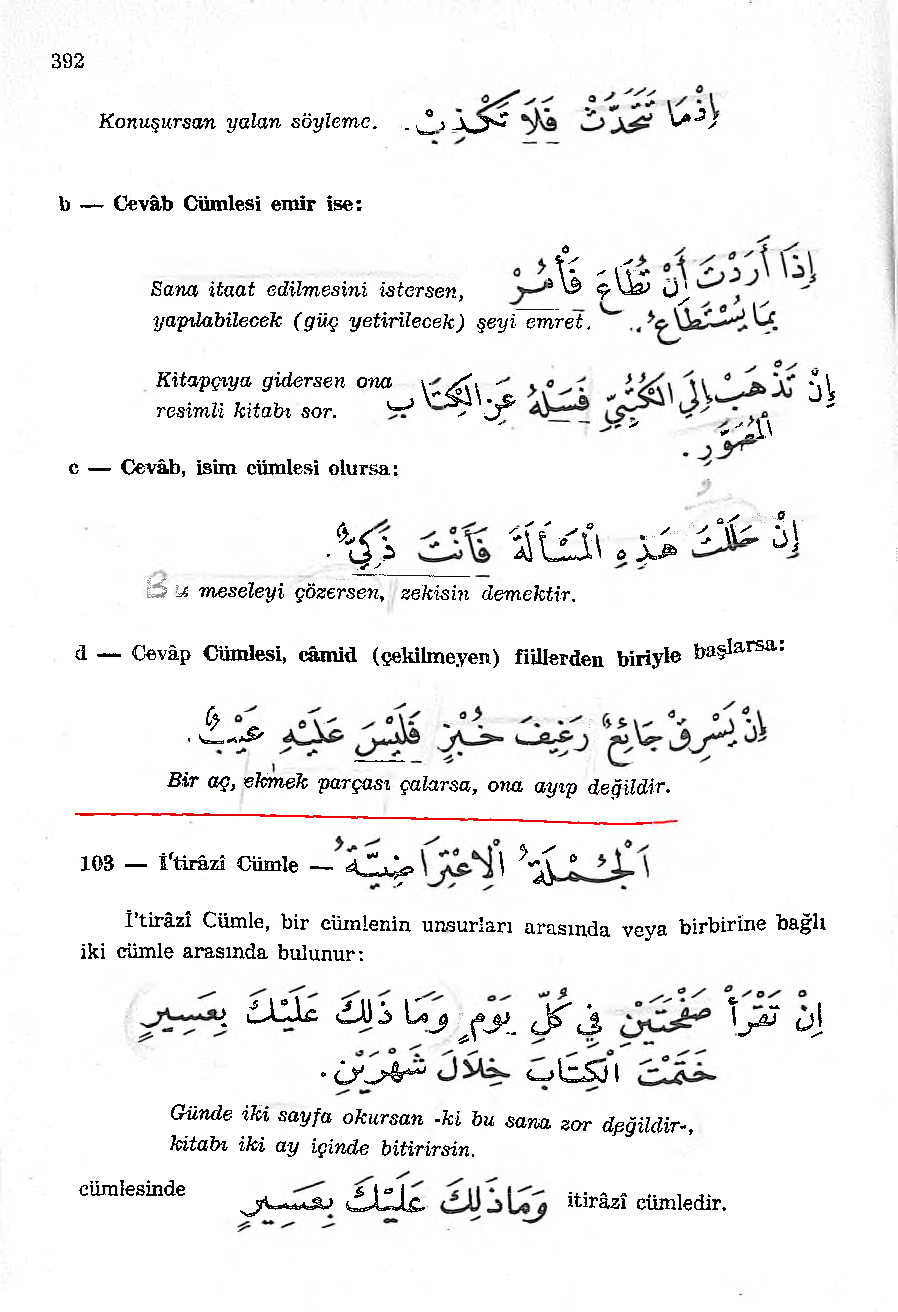 392
Konuşursan yalan söyleme. إِذْمَا تَتَحَدَّثْ فَلَا تَكْذِبْ.
b — Cevâb Cümlesi emir ise:
Sana itaat edilmesini istersen, إِذَا أَرَدْتَ أَنْ تُطَاعَ فَأْمُرْ
yapılabilecek (güç yetirilecek) şeyi emret. بِمَا يُسْتَطَاعُ.
Kitapçıya gidersen ona إِنْ تَذْهَبْ إِلَى الْكُتُبِيِّ فَسَلْهُ عَنِ الْكِتَابِ
resimli kitabı sor. الْمُصَوَّرِ.
c — Cevâb, isim cümlesi olursa:
إِنْ حَلَلْتَ هَذِهِ الْمَسْأَلَةَ فَأَنْتَ ذَكِيٌّ.
Bu meseleyi çözersen, zekisin demektir.
d — Cevâp Cümlesi, câmid (çekilmeyen) fiillerden biriyle başlarsa:
إِنْ يَسْرِقْ جَائِعٌ رَغِيفَ خُبْزٍ فَلَيْسَ عَلَيْهِ عَيْبٌ.
Bir aç, ekmek parçası çalarsa, ona ayıp değildir.
103 — İ'tirâzî Cümle — اَلْجُمْلَةُ الْاِعْتِرَاضِيَّةُ
İ'tirâzî Cümle, bir cümlenin unsurları arasında veya birbirine bağlı
iki cümle arasında bulunur:
إِنْ تَقْرَأْ صَفْحَتَيْنِ فِي كُلِّ يَوْمٍ وَمَا ذَلِكَ عَلَيْكَ بِعَسِيرٍ
خَتَمْتَ الْكِتَابَ خِلَالَ شَهْرَيْنِ.
Günde iki sayfa okursan -ki bu sana zor değildir-,
kitabı iki ay içinde bitirirsin.
cümlesinde وَمَا ذَلِكَ عَلَيْكَ بِعَسِيرٍ itirâzî cümledir.